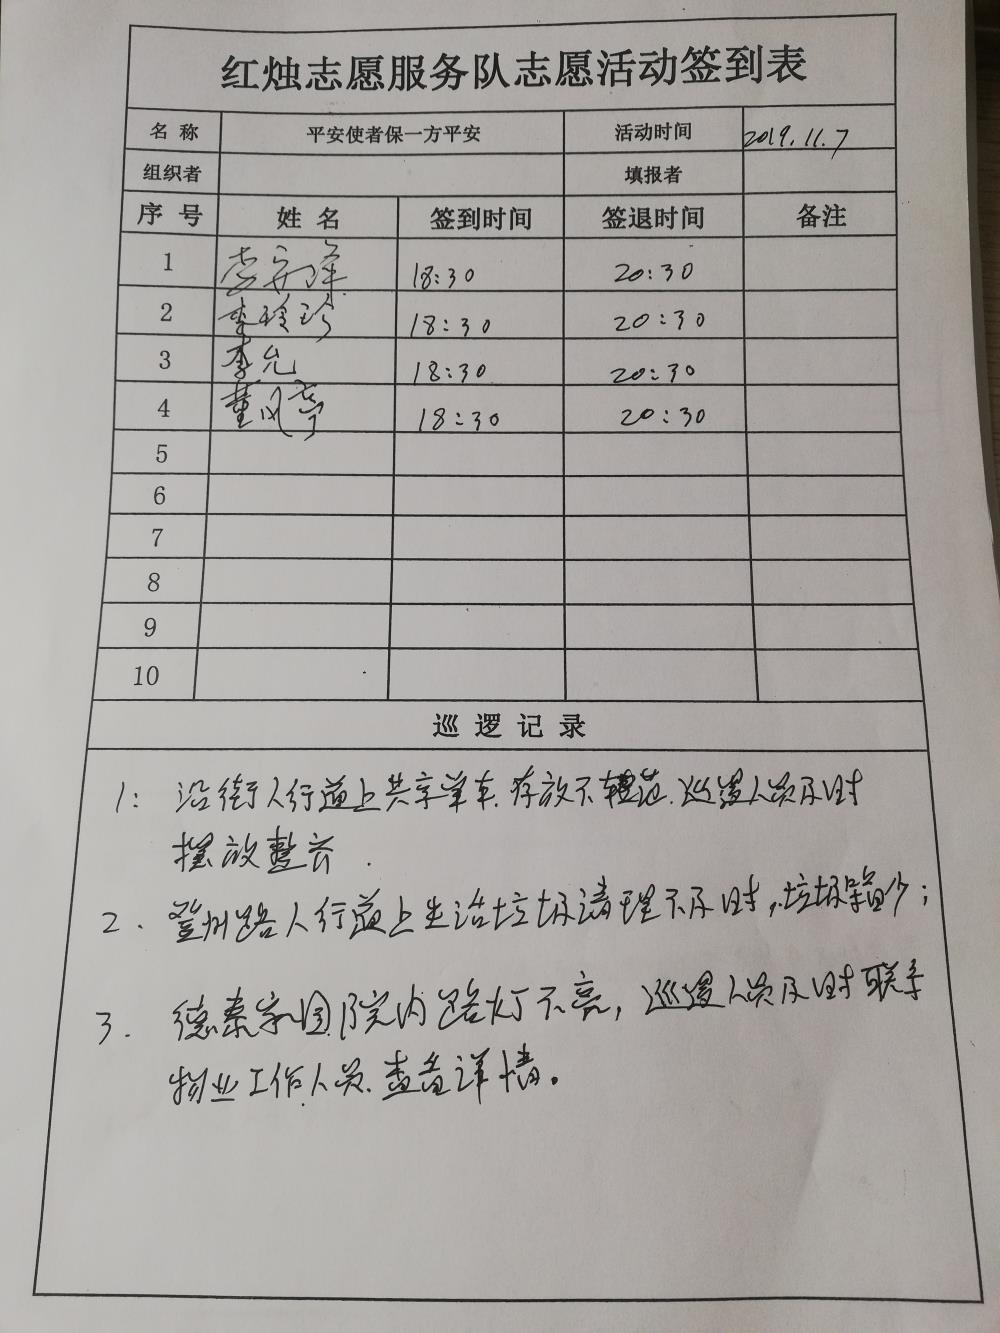 红烛志愿服务队志愿活动签到表
名 称 平安使者保一方平安 活动时间 2019.11.7
组织者 填报者
序 号 姓 名 签到时间 签退时间 备注
1 18:30 20:30
2 李玲珍 18:30 20:30
3 李允 18:30 20:30
4 董风 18:30 20:30
5
6
7
8
9
10
巡 逻 记 录
1: 沿街人行道上共享单车.存放不规范.巡逻人员及时
摆放整齐.
2. 登州路人行道上生活垃圾清理不及时,垃圾箱少;
3. 德泰家园院内路灯不亮,巡逻人员及时联系
物业工作人员.查看详情。